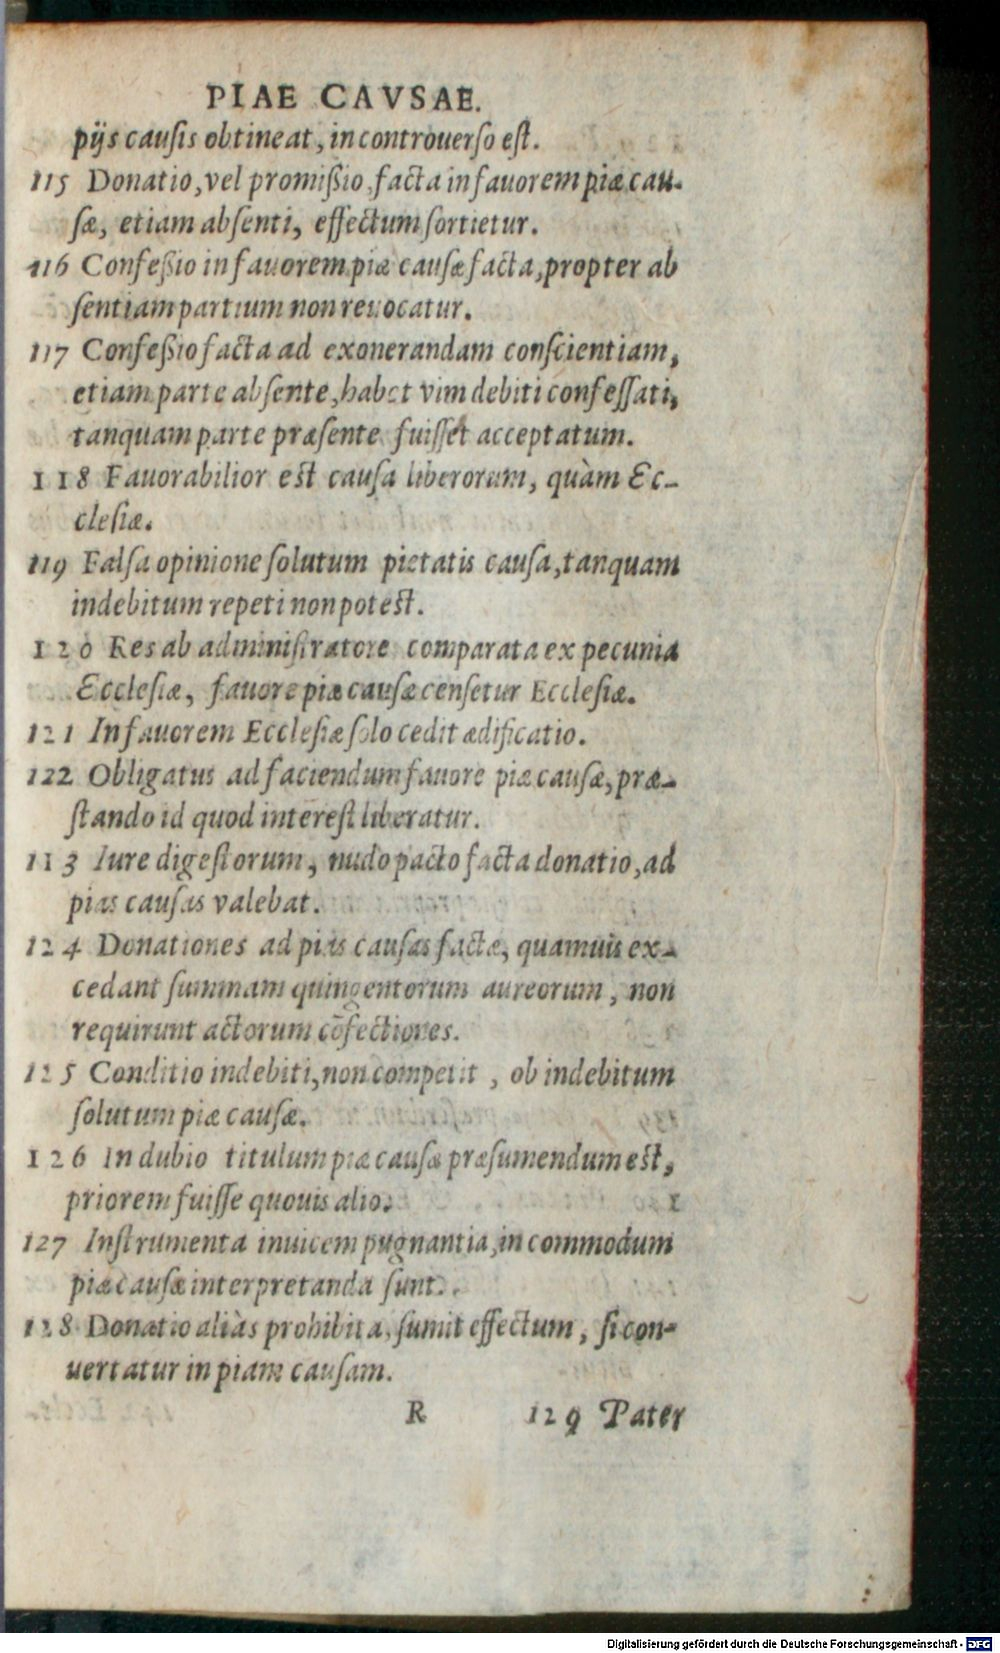 PIAE CAVSAE.
pijs causis obtineat, in controuerso est.
115 Donatio, vel promißio, facta in fauorem piæ cau-
sæ, etiam absenti, effectum sortietur.
116 Confeßio in fauorem piæ causæ facta, propter ab
sentiam partium non reuocatur.
117 Confeßio facta ad exonerandam conscientiam,
etiam parte absente, habet vim debiti confessati,
tanquam parte præsente fuisset acceptatum.
118 Fauorabilior est causa liberorum, quàm Ec-
clesiæ.
119 Falsa opinione solutum pietatis causa, tanquam
indebitum repeti non potest.
120 Res ab administratore comparata ex pecunia
Ecclesiæ, fauore piæ causæ censetur Ecclesiæ.
121 In fauorem Ecclesiæ solo cedit ædificatio.
122 Obligatus ad faciendum fauore piæ causæ, præ-
stando id quod interest liberatur.
113 Iure digestorum, nudo pacto facta donatio, ad
pias causas valebat.
124 Donationes ad pias causas factæ, quamuis ex-
cedant summam quingentorum aureorum, non
requirunt actorum cõfectiones.
125 Conditio indebiti, non competit, ob indebitum
solutum piæ causæ.
126 In dubio titulum piæ causæ præsumendum est,
priorem fuisse quouis alio.
127 Instrumenta inuicem pugnantia, in commodum
piæ causæ interpretanda sunt.
128 Donatio aliàs prohibita, sumit effectum, si con-
uertatur in piam causam.
R 129 Pater
Digitalisierung gefördert durch die Deutsche Forschungsgemeinschaft - DFG